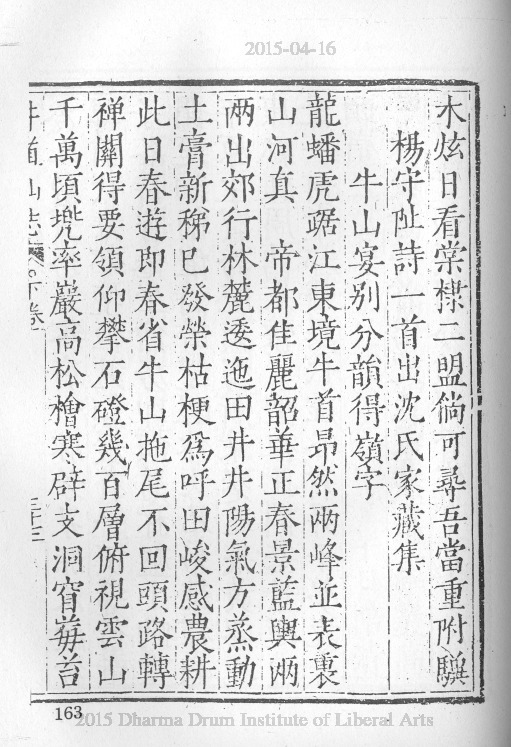 2015-04-16
木炫日看棠棣二盟倘可尋吾當重附驥
楊守阯詩一首出沈氏家藏集
牛山宴别分韻得嶺字
龍蟠虎踞江東境牛首昻然兩峰並表裏
山河真　帝都佳麗韶華正春景藍輿兩
兩出郊行林麓逶迤田井井陽氣方蒸動
土膏新稊已發榮枯梗爲呼田畯感農耕
此日春遊即春省牛山拖尾不回頭路轉
禅關得要領仰攀石磴幾百層俯視雲山
千萬頃兠率巖高松檜寒辟支洞窅莓苔
牛首山志 下卷 三十三
163
2015 Dharma Drum Institute of Liberal Arts